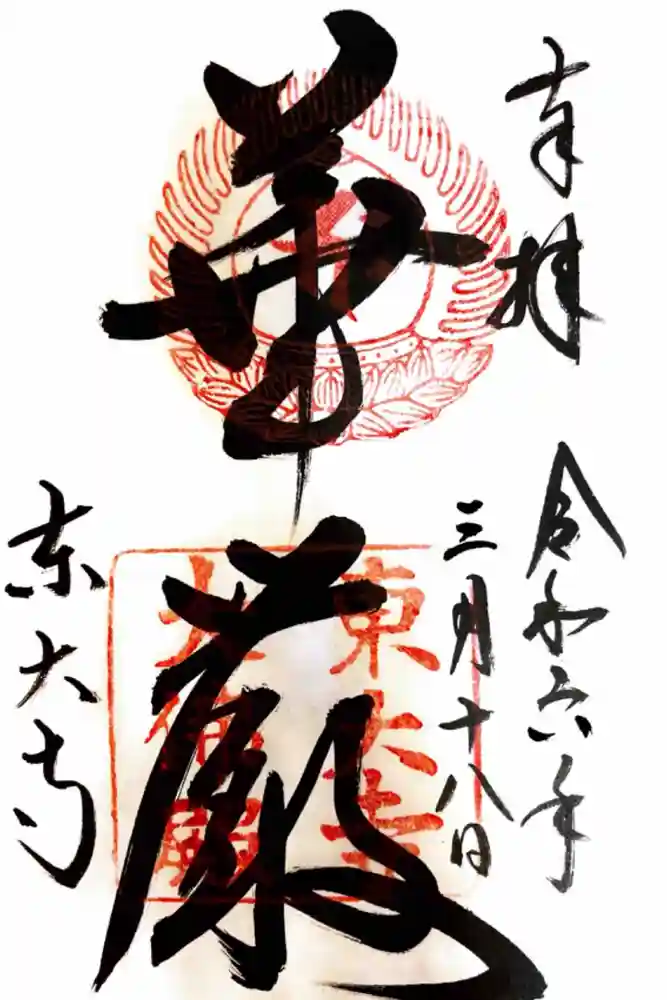 奉拝
令和六年
三月十八日
華厳
東大寺
大仏殿
東大寺